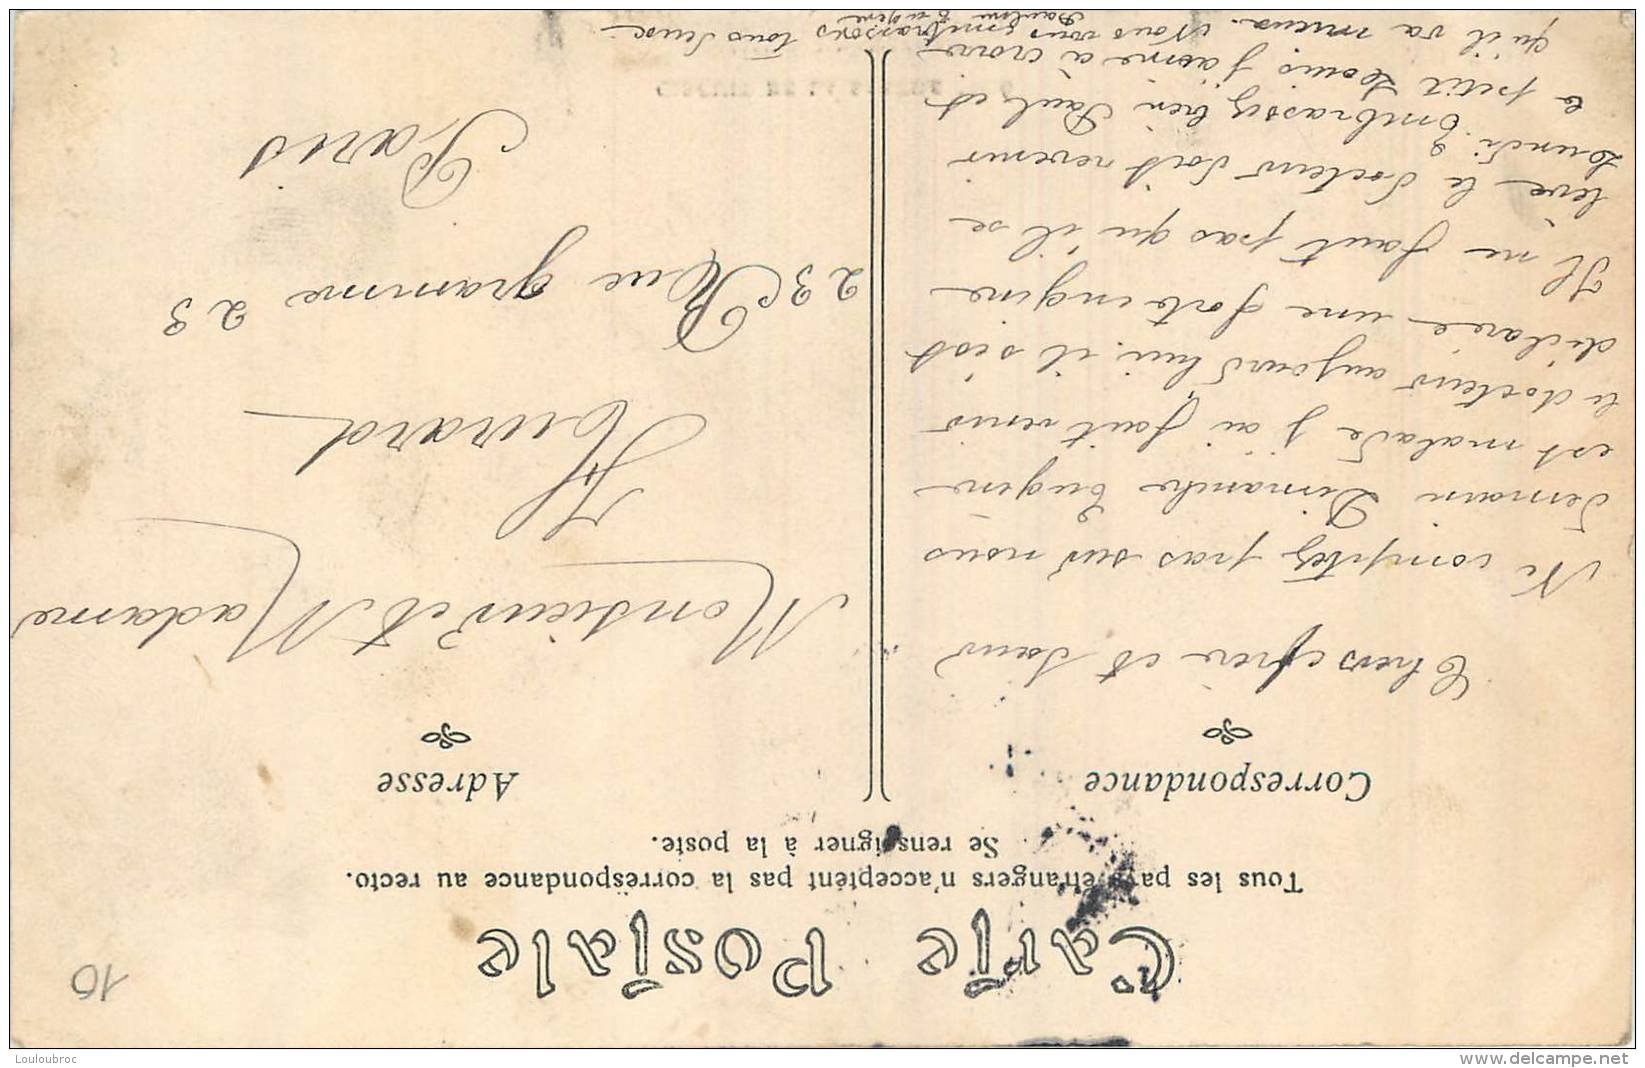 Carte Postale
Tous les pays étrangers n'acceptent pas la correspondance au recto.
Se renseigner à la poste.
Correspondance
Adresse
Chers frère et Sœur
Ne comptez pas sur nous
demain Dimanche Eugène
est malade j'ai fait venir
le docteur aujourd'hui il s'est
déclaré une forte angine
Il ne faut pas qu'il se
lève le docteur doit revenir
Lundi. Embrassez bien Paul et
le petit Louis j'aime à croire
qu'il va mieux. Nous vous embrassons tous deux
Pauline Eugène
Monsieur et Madame
Huard
23 Rue gramme 23
Paris
10
Louloubroc
delcampe.net